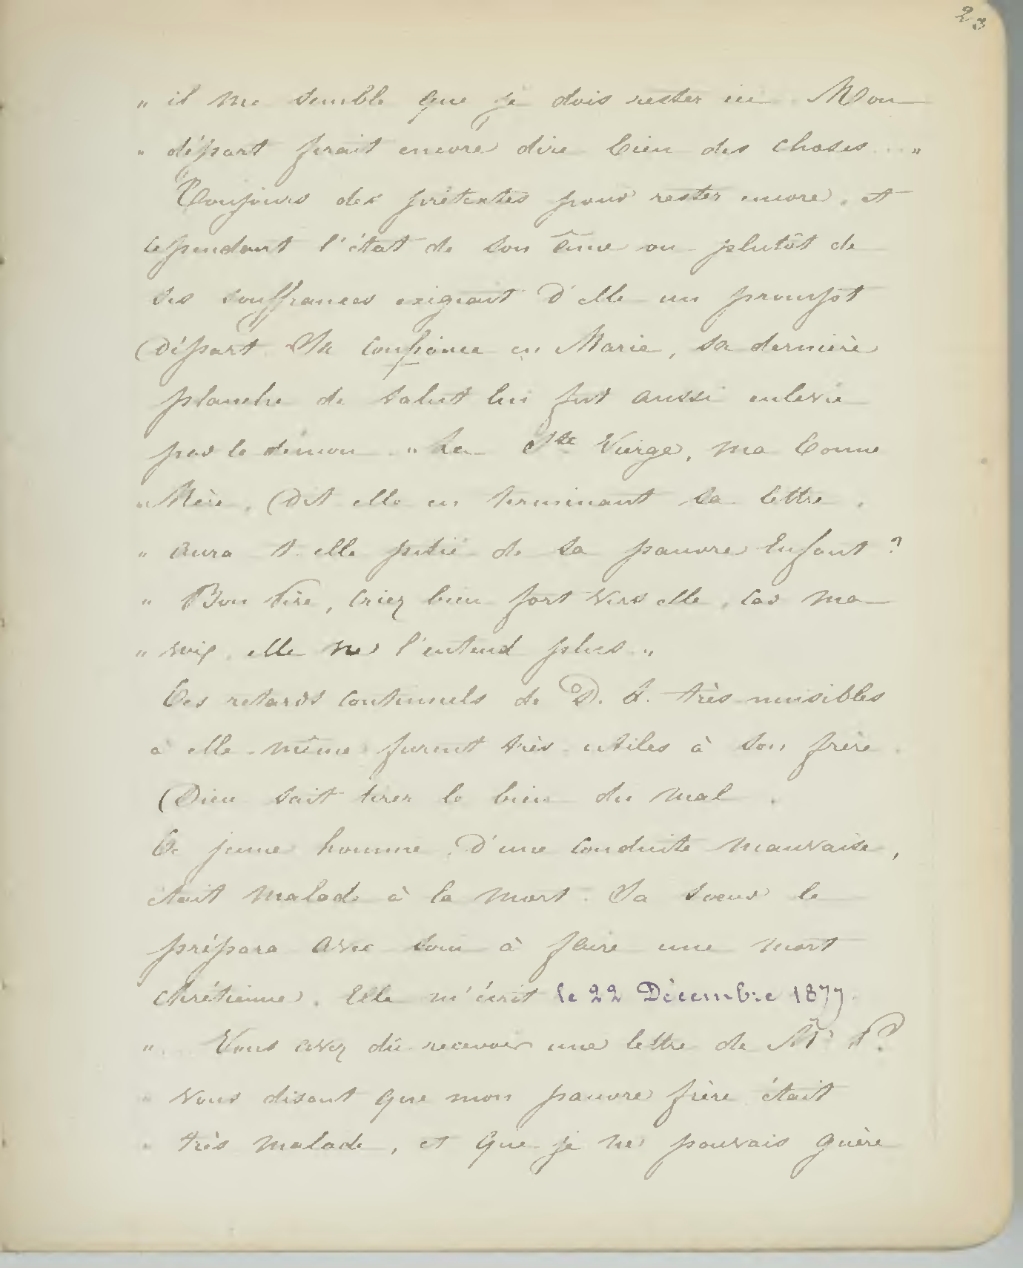 23
„ il me semble que je dois rester ici. Mon
„ départ ferait encore dire bien des choses... „
Toujours des prétextes pour rester encore, et
cependant l'état de son âme ou plutôt de
ses souffrances exigeait d'elle un prompt
départ. Sa confiance en Marie, sa dernière
planche de salut lui fut aussi enlevée
par le démon. „ La Ste Vierge, ma bonne
„ Mère, dit elle en terminant sa lettre,
„ aura t-elle pitié de sa pauvre Enfant ?
„ Bon Père, criez bien fort vers elle, car ma
„ voix, elle ne l'entend plus „
Ces retards continuels de D. L. très nuisibles
à elle-même furent très utiles à son frère.
Dieu sait tirer le bien du mal.
Ce jeune homme, d'une conduite mauvaise,
était malade à la mort. Sa soeur le
prépara avec soin à faire une mort
chrétienne. Elle m'écrit le 22 Décembre 1877.
„ Vous avez dû recevoir une lettre de Mr P.
„ vous disant que mon pauvre frère était
„ très malade, et que je ne pouvais guère